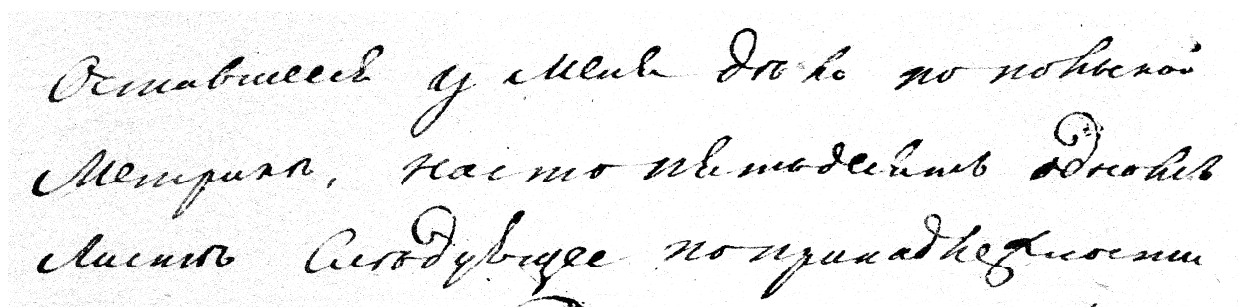 Оставшееся у меня дѣло по польской
Метрики, на сто пятьдесятъ одномъ
листѣ слѣдующее по принадлежности